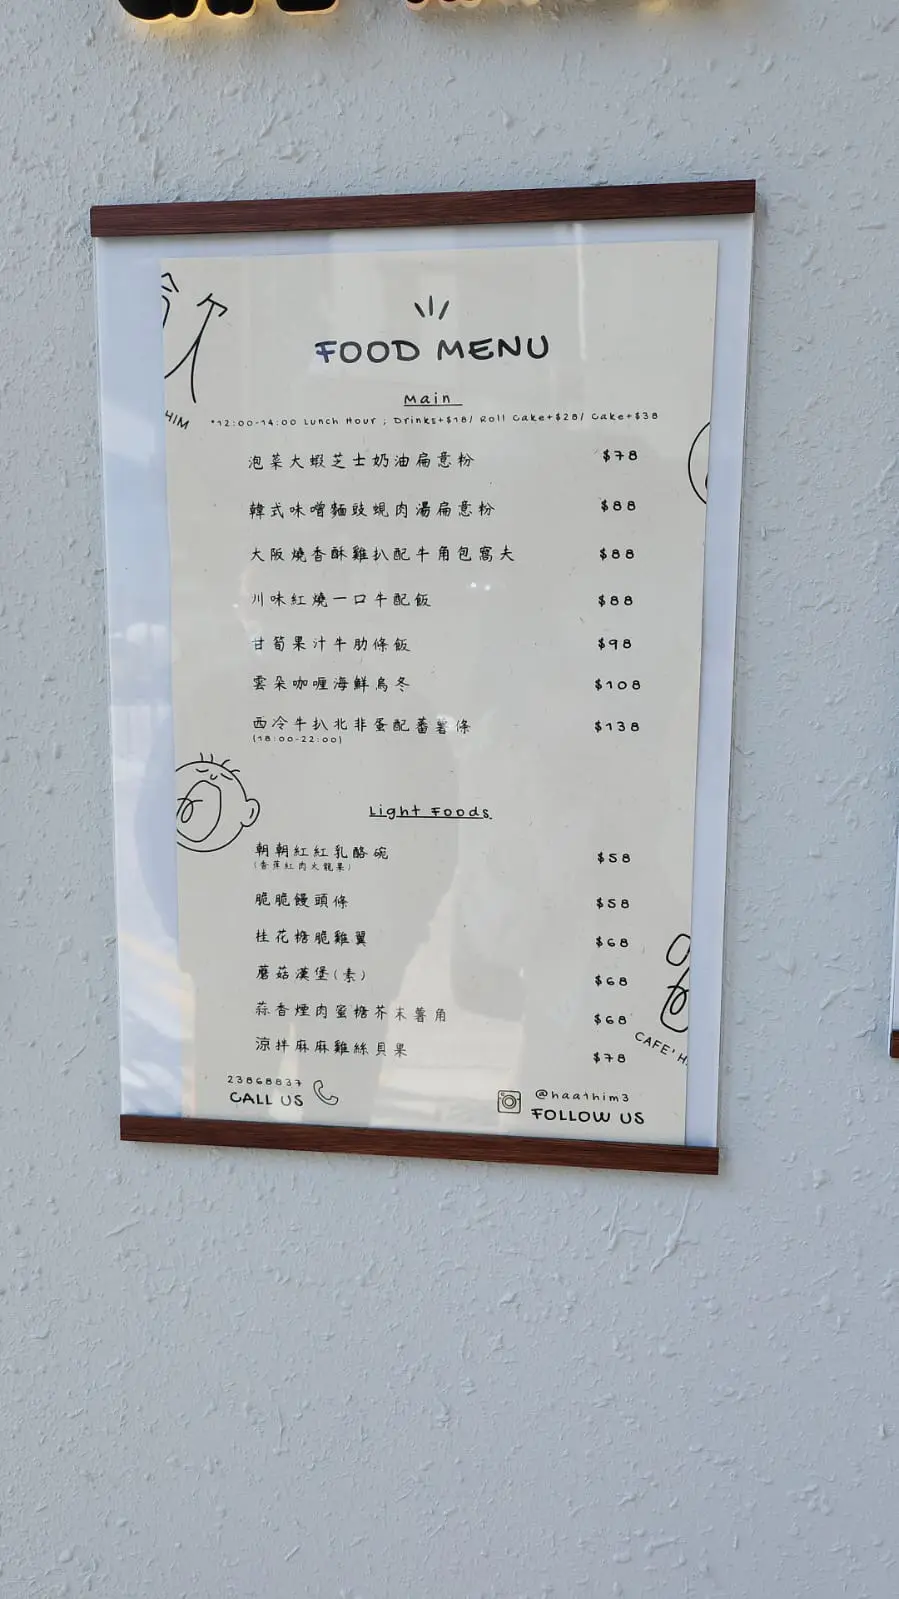 FOOD MENU
Main
*12:00-14:00 Lunch Hour ; Drinks+$18/ Roll Cake+$28/ Cake+$38
泡菜大蝦芝士奶油扁意粉 $78
韓式味噌麵豉蜆肉湯扁意粉 $88
大阪燒香酥雞扒配牛角包窩夫 $88
川味紅燒一口牛配飯 $88
甘筍果汁牛肋條飯 $98
雲朵咖喱海鮮烏冬 $108
西冷牛扒北非蛋配蕃薯條 $138
(18:00-22:00)
Light Foods
朝朝紅紅乳酪碗 $58
(香蕉紅肉火龍果)
脆脆饅頭條 $58
桂花糖脆雞翼 $68
蘑菇漢堡(素) $68
蒜香煙肉蜜糖芥末薯角 $68
涼拌麻麻雞絲貝果 $78
23868837
CALL US
@haa1him3
FOLLOW US
HIM
CAFE' H